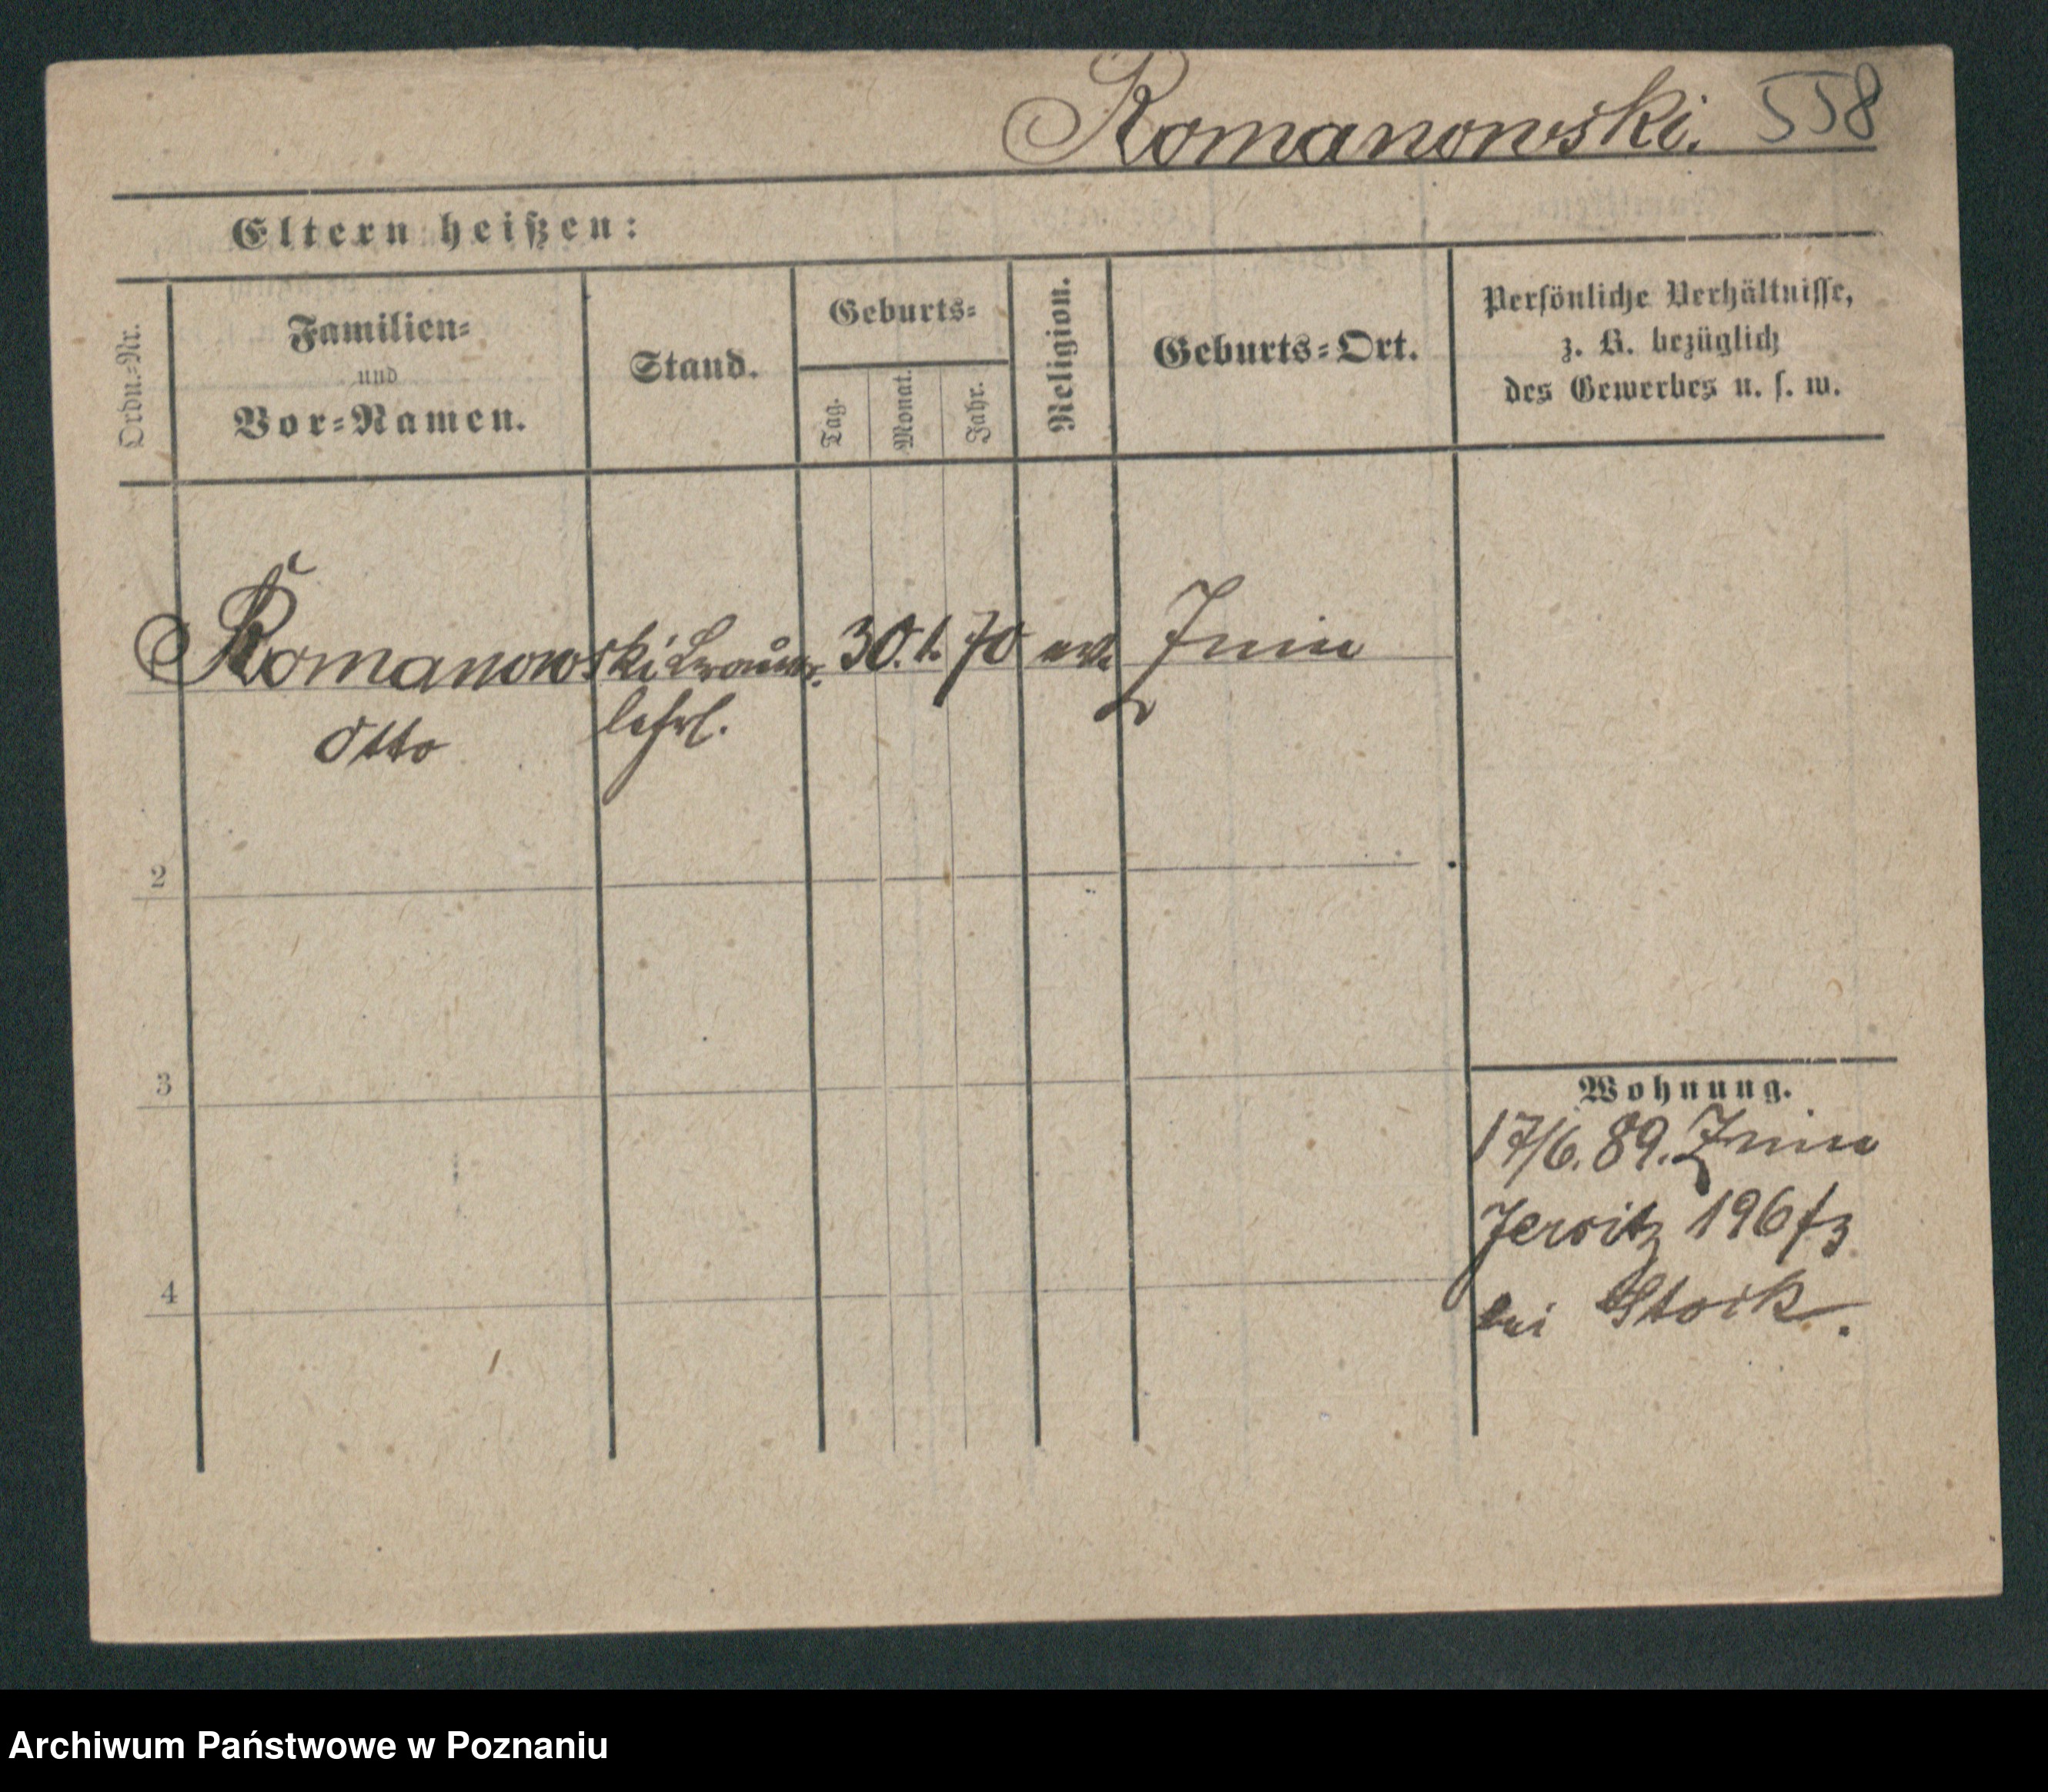 Romanowski. 558
Eltern heißen:
Ordn.-Nr.
Familien-
und
Vor-Namen.
Stand.
Geburts-
Tag.
Monat.
Jahr.
Religion.
Geburts-Ort.
Persönliche Verhältnisse,
z. B. bezüglich
des Gewerbes u. s. w.
Romanowski Brauer- 30. 1. 70 Znin
Otto lehrl.
2
3
4
Wohnung.
17/6. 89. Znin
Jersitz 196
bei Stock.
Archiwum Państwowe w Poznaniu